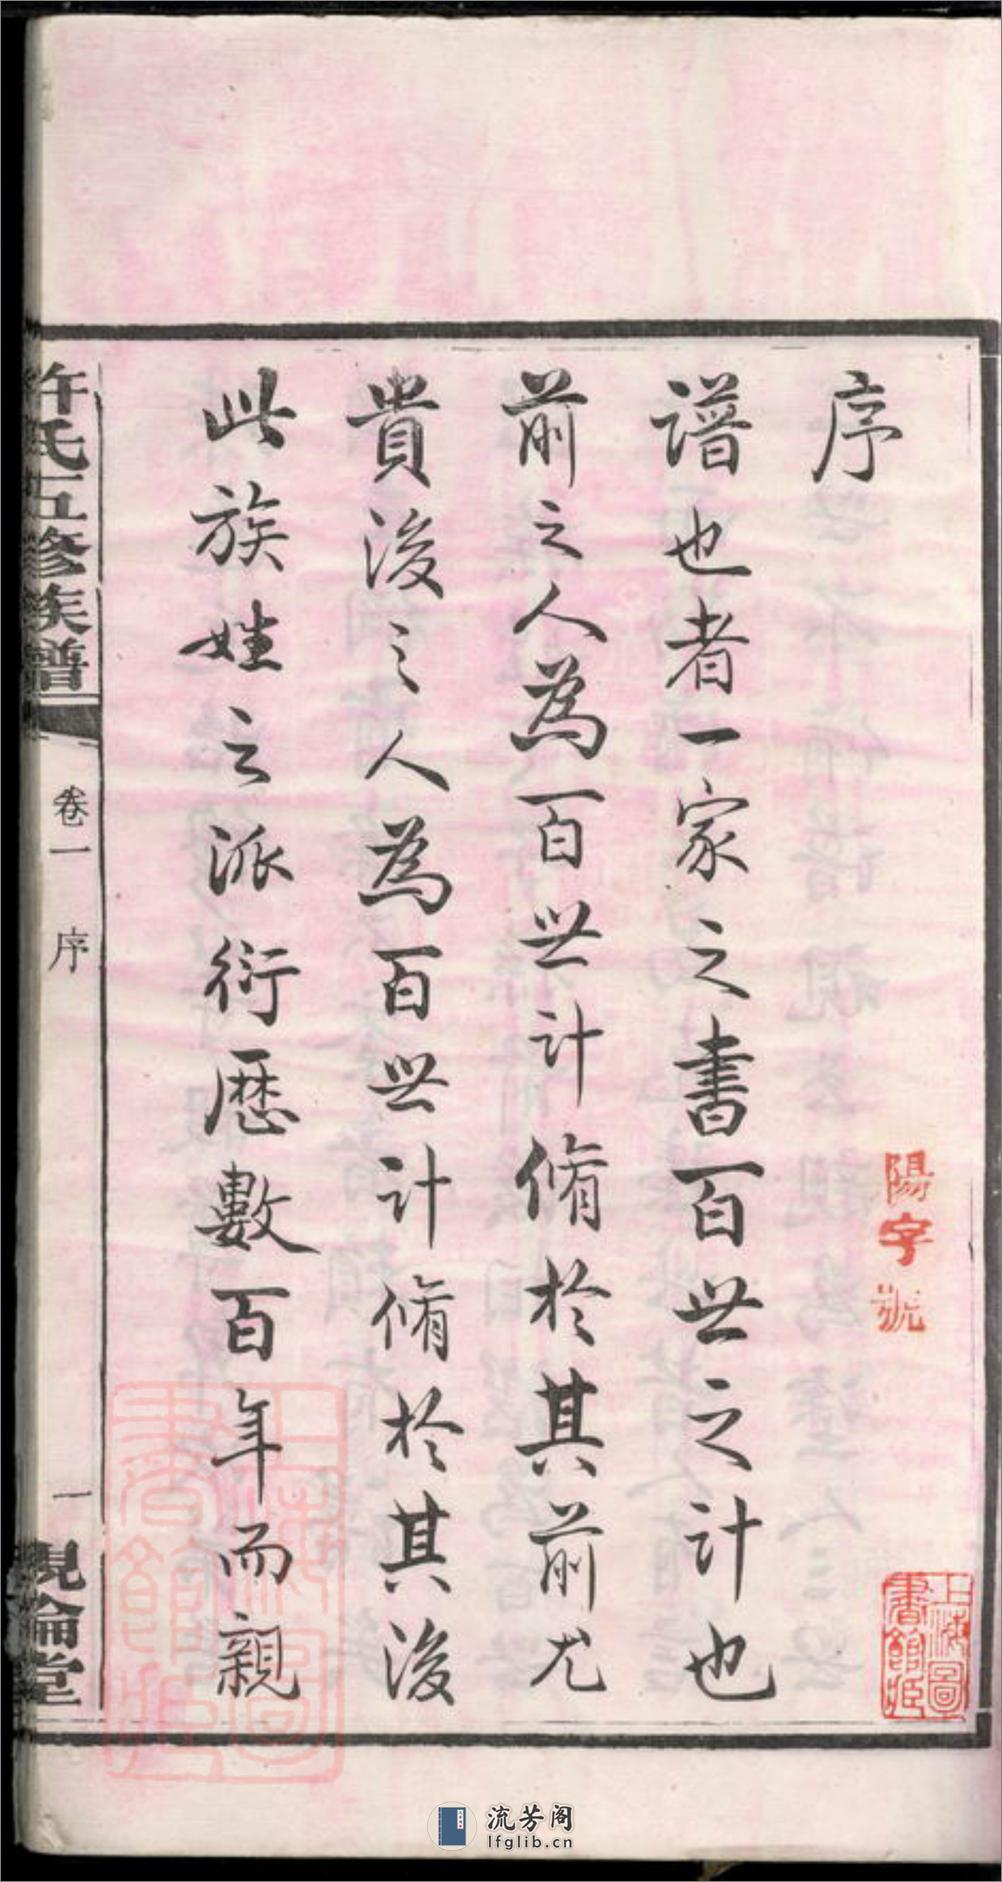 序
譜也者一家之書百世之計也
前之人為百世計脩於其前尤
貴後之人為百世計脩於其後
此族姓之派衍歷數百年而親
許氏五修族譜
卷一 序
一
觀倫堂
陽字號
上海圖書館藏
流芳阁
lfglib.cn